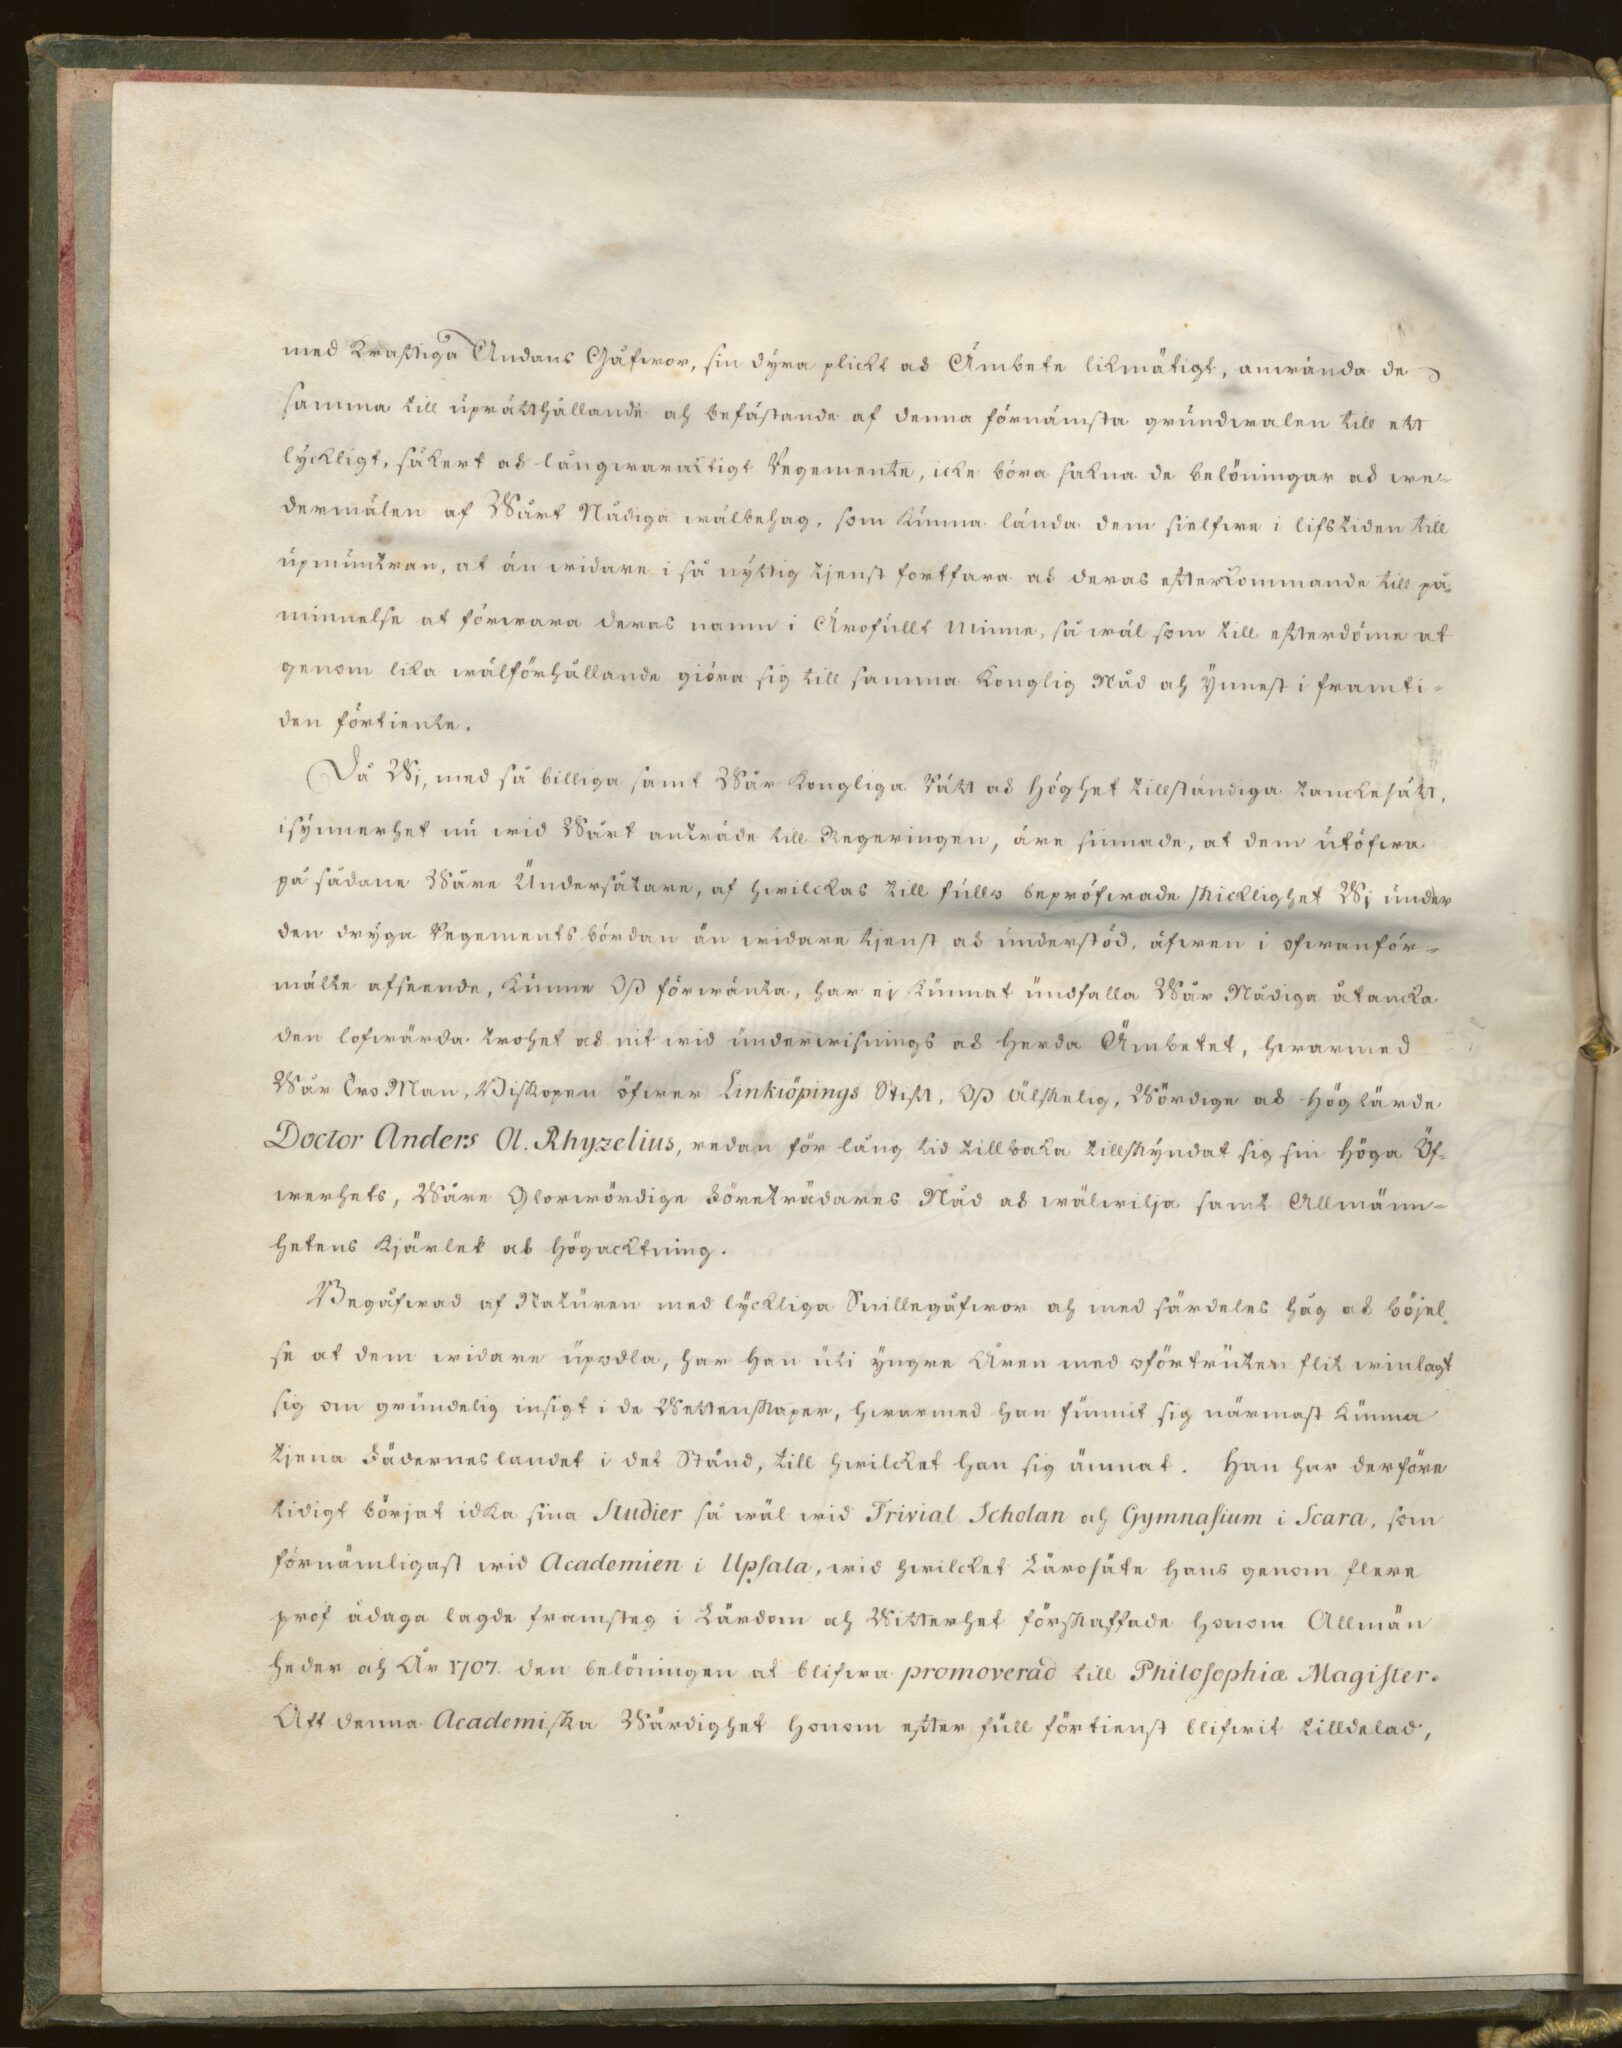 med kraftiga Andans Gåfwor, sin dyra plickt od Ämbete likmätigt, anwända de
samma till uprätthållande och befästande af denna förnämsta grundwalen till ett
lyckligt, säkert od långwaraktigt Regemente, icke böra sakna de belöningar od we-
dermälen af Wårt Nådiga wälbehag, som kunna lända dem sielfwe i lifstiden till
upmuntran, at än widare i så nyttig tjenst fortfara od deras efterkommande till på-
minnelse at förwara deras namn i Ärofullt Minne, så wäl som till efterdöme at
genom lika wälförhållande giöra sig till samma Konglig Nåd och Ynnest i framti-
den förtiente.
Då Wi, med så billiga samt Wår Kongliga Rätt od Höghet tillständiga tanckesätt,
isynnerhet nu wid Wårt anträde till Regeringen, äre sinnade, at dem utöfwa
på sådane Wåre Undersåtare, af hwilckas till fullo bepröfwade skicklighet Wi under
den dryga Regementsbördan än widare tjenst od understöd, äfwen i ofwanför-
mälte afseende, kunne Oß förwänta, har ej kunnat undfalla Wår Nådiga åtancka
den lofwärda trohet od nit wid underwisnings od Herda Ämbetet, hwarmed
Wår Tro Man, Biskopen öfwer Linkiöpings Stift, Oß Älskelig, Wördige od Höglärde
Doctor Anders O. Rhyzelius, redan för lång tid tillbaka tillskyndat sig sin Höga Öf-
werhets, Wåre Glorwördige Företrädares Nåd od wälwilja samt Allmänn-
hetens Kjärlek od Högacktning.
Begåfwad af Naturen med lyckliga Snillegåfwor och med särdeles håg od böjel-
se at dem widare upodla, har Han uti yngre Åren med oförtruten flit winlagt
sig om grundelig insigt i de Wettenskaper, hwarmed Han funnit sig närmast kunna
tjena Fäderneslandet i det Stånd, till hwilcket Han sig ämnat. Han har derföre
tidigt börjat idka sina Studier så wäl wid Trivial Scholan och Gymnasium i Scara, som
förnämligast wid Academien i Upsala, wid hwilcket Lärosäte Hans genom flere
prof ådaga lagde framsteg i Lärdom och Witterhet förskaffade Honom Allmän
heder och År 1707. den belöningen at blifwa promoverad till Philosophiæ Magister.
Att denna Academiska Wärdighet Honom efter full förtienst blifwit tilldelad,